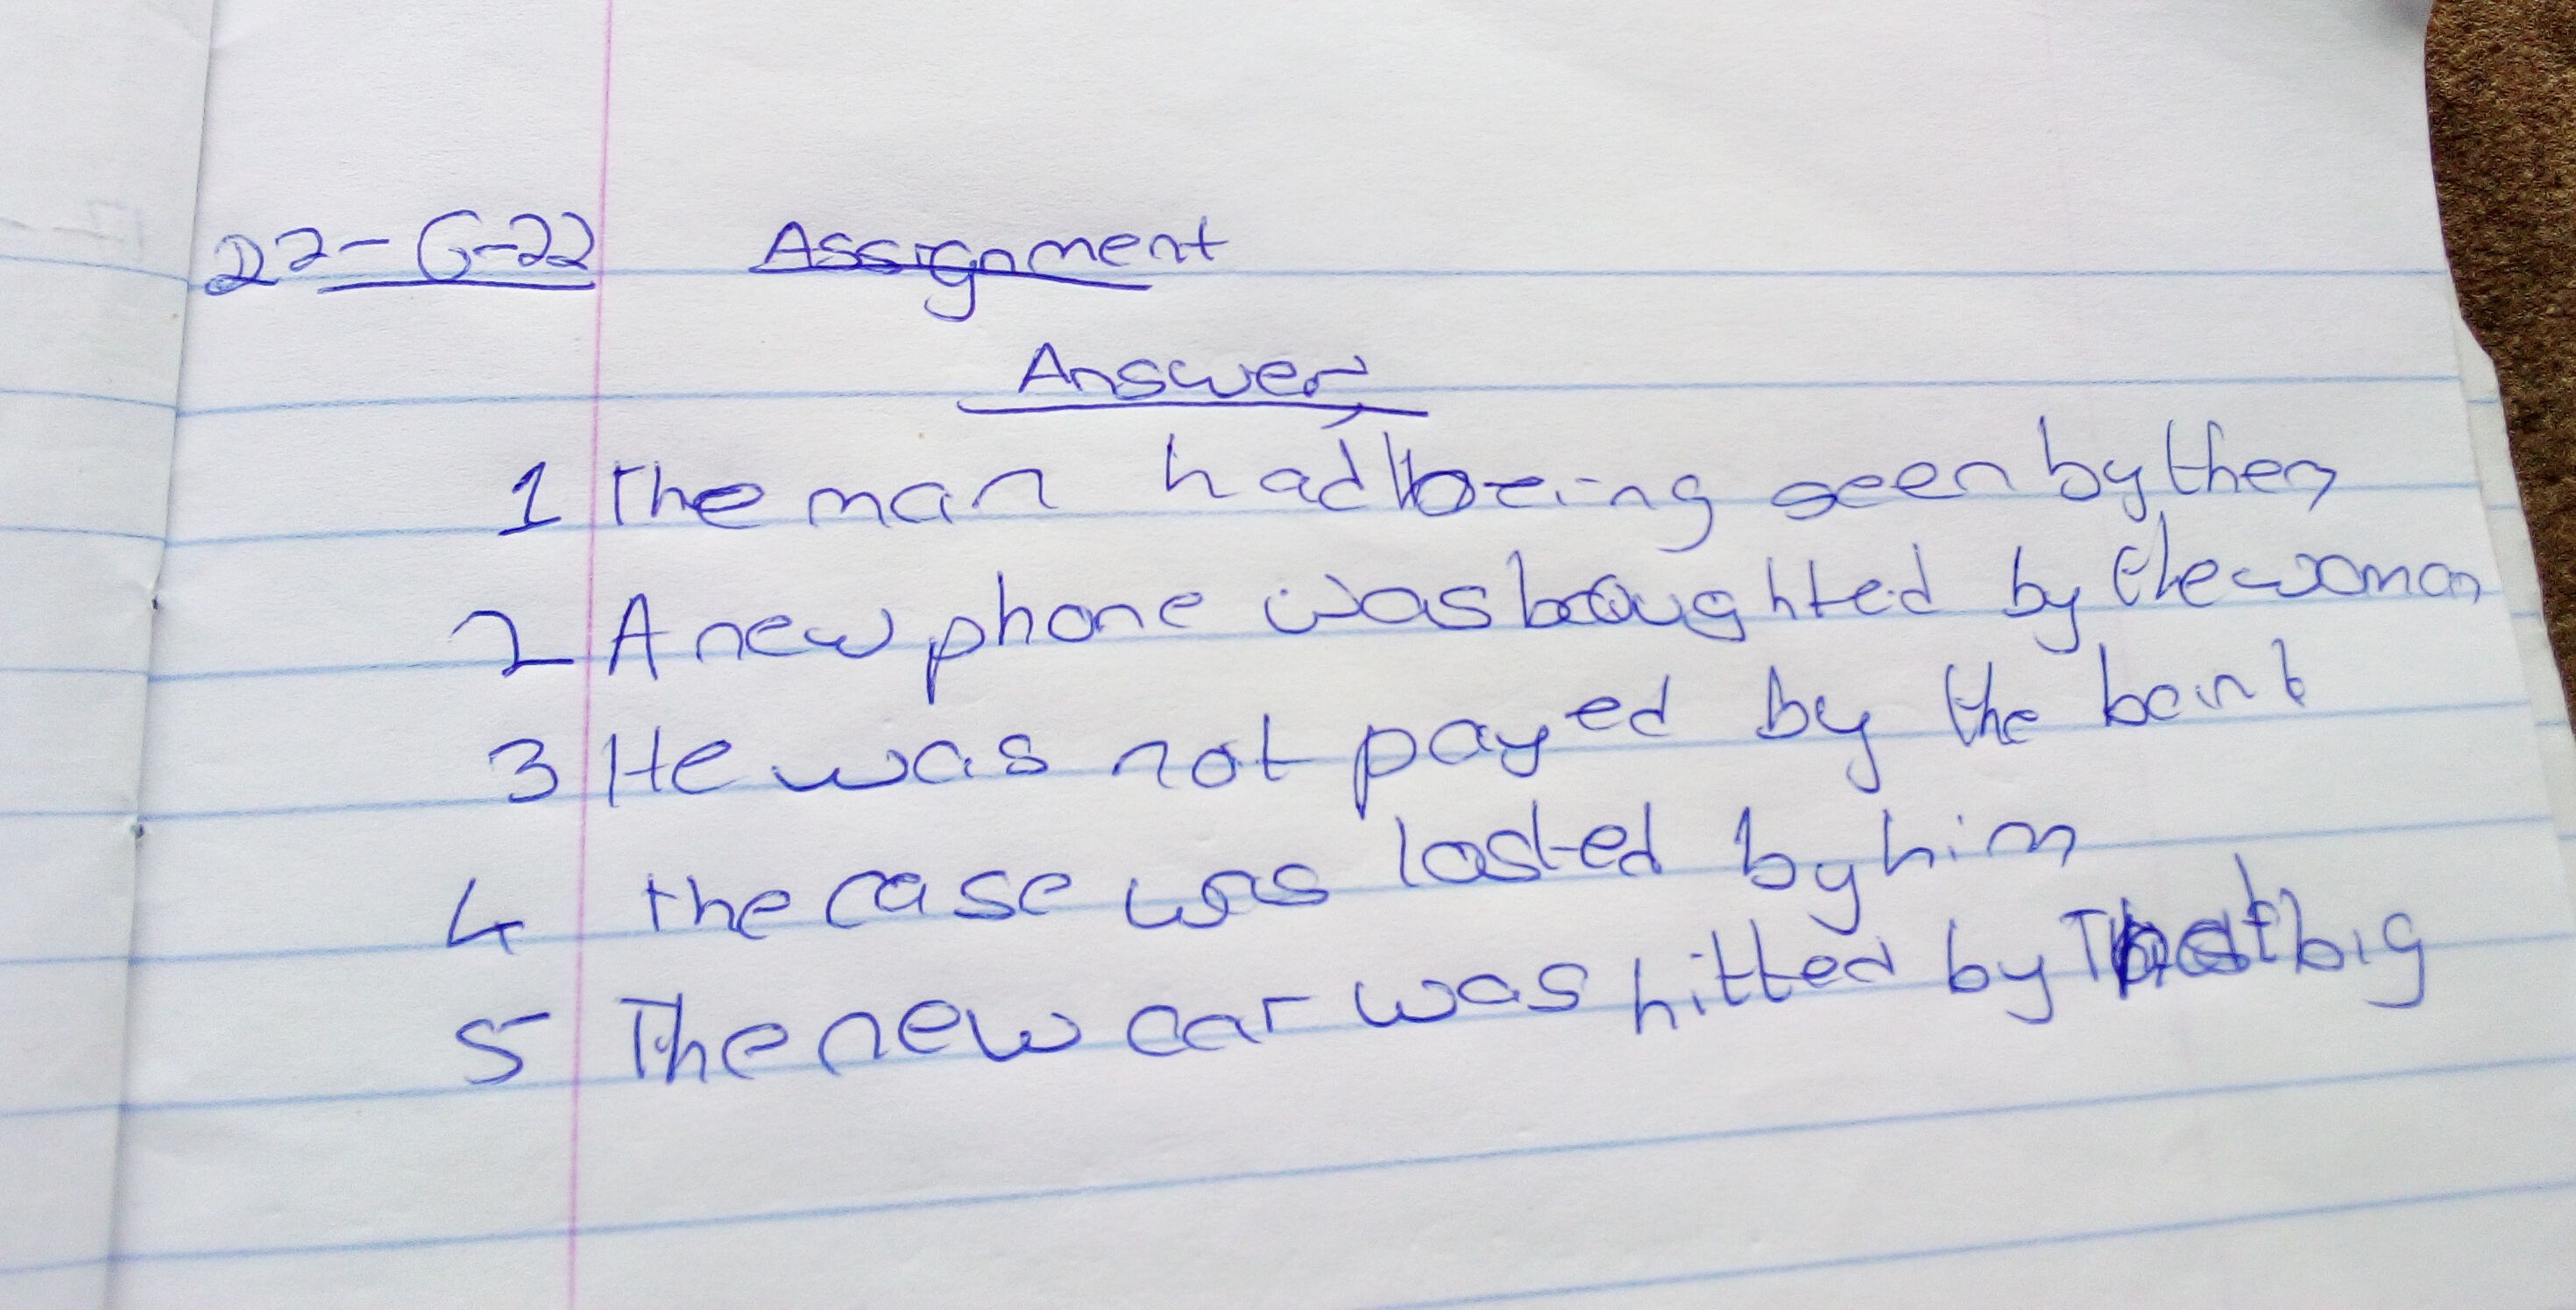 22-6-22 Assignment
Answer
1 The man had being seen by them
2 A new phone was boughted by the woman
3 He was not payed by the bank
4 the case was losted by him
5 The new car was hitted by That big